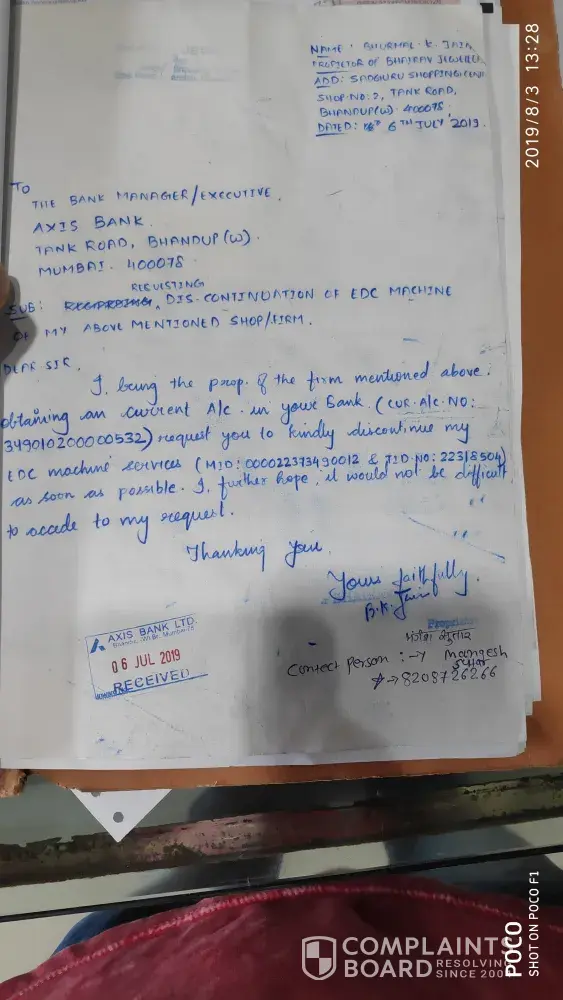 NAME: BHURMAL. K. JAIN
PROPIETOR OF BHAIRAV JEWELLER
ADD: SADGURU SHOPPING
SHOP. NO: 2, TANK ROAD,
BHANDUP(W). 400078.
DATED: 6TH JULY 2019.
TO
THE BANK MANAGER/EXECUTIVE.
AXIS BANK.
TANK ROAD, BHANDUP (W).
MUMBAI. 400078
REQUESTING
SUB: DIS-CONTINUATION OF EDC MACHINE
OF MY ABOVE MENTIONED SHOP/FIRM.
DEAR SIR,
I. being the prop. of the firm mentioned above.
obtaining an current A/c. in your Bank. (CUR. A/c. NO:
349010200000532) request you to kindly discontinue my
EDC machine services (MID: 000022373490012 & TID. NO: 22318504)
as soon as possible. I, further hope, it would not be difficult
to accede to my request.
Thanking You.
Yours faithfully.
B.K. Jain
Proprietor
AXIS BANK LTD.
06 JUL 2019
RECEIVED
Contect person :→ Mangesh
Sutar
→ 8208726266
2019/8/3 13:28
POCO
SHOT ON POCO F1
COMPLAINTS
BOARD
RESOLVING
SINCE 2004